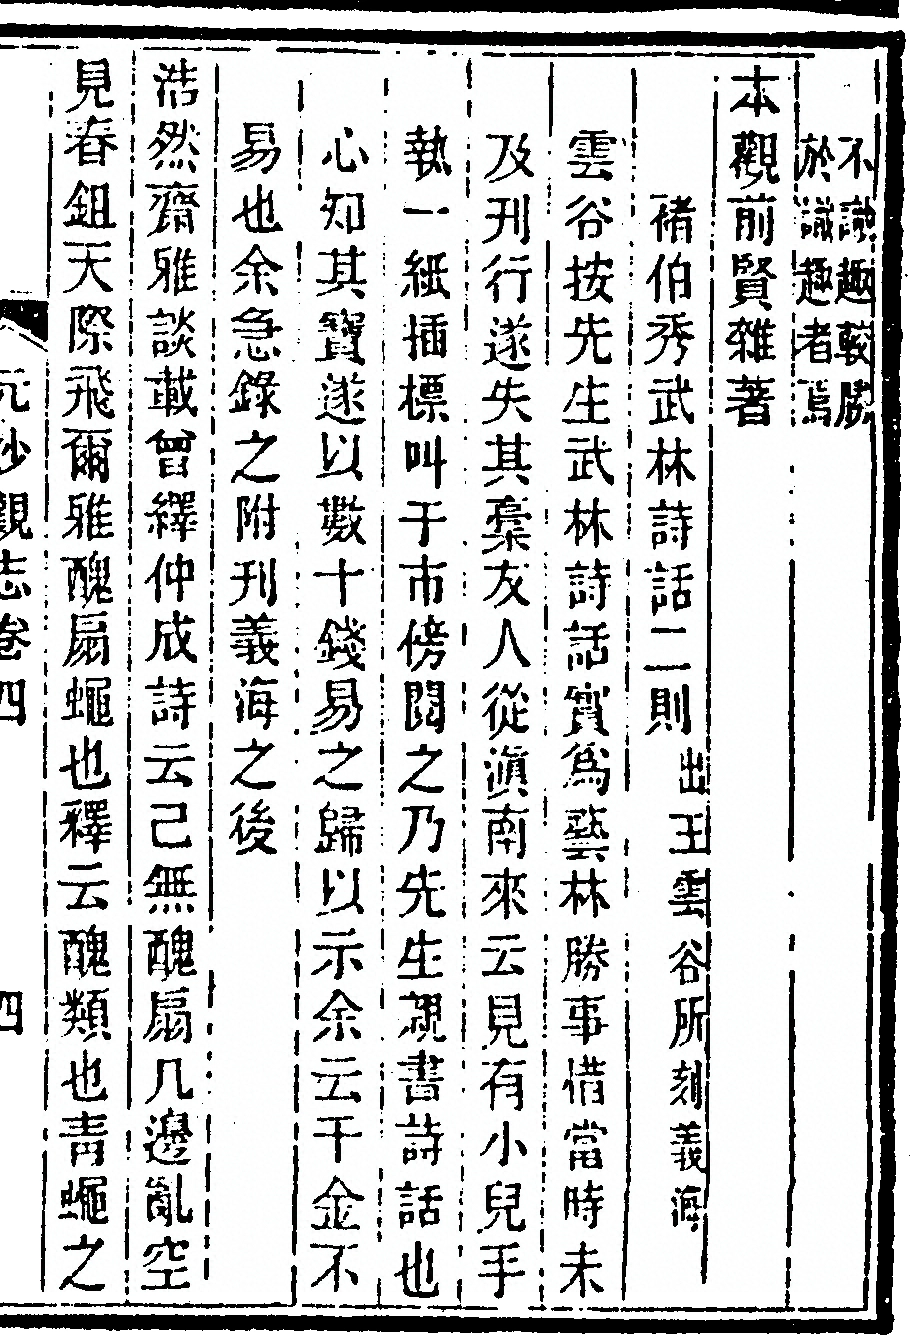 不識趣較勝
於識趣者焉
本觀前賢雜著
褚伯秀武林詩話二則出王雲谷所刻義海
雲谷按先生武林詩話實爲藝林勝事惜當時未
及刊行遂失其稾友人從滇南來云見有小兒手
執一紙插標叫于市傍閱之乃先生親書詩話也
心知其寶遂以數十錢易之歸以示余云千金不
易也余急錄之附刊義海之後
浩然齋雅談載曾繹仲成詩云己無醜扇几邊亂空
見舂鉏天際飛爾雅醜扇蠅也釋云醜類也青蠅之
元妙觀志卷四
四